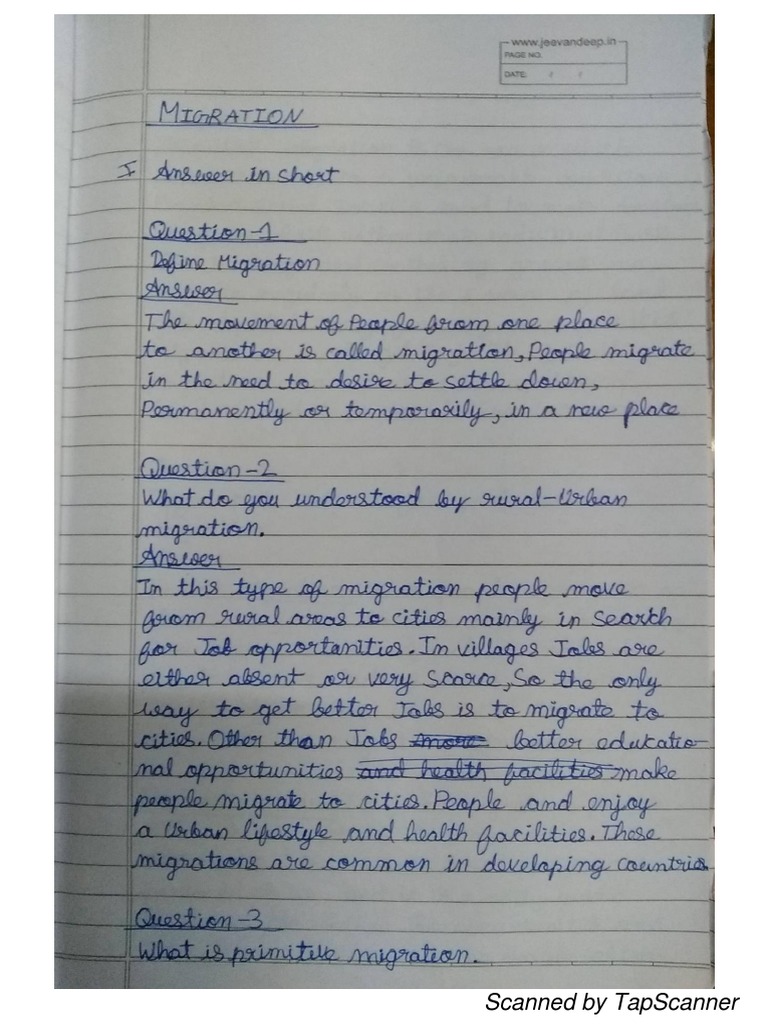 www.jeevandeep.in
PAGE NO.
DATE: / /
MIGRATION
I Answer in short
Question-1
Define Migration
Answer
The movement of People from one place
to another is called migration, People migrate
in the need to desire to settle down,
Permanently or temporarily, in a new place
Question-2
What do you understood by rural-Urban
migration.
Answer
In this type of migration people move
from rural areas to cities mainly in search
for Job opportanities. In villages Jobs are
either absent or very Scarce, So the only
way to get better Jobs is to migrate to
cities. Other than Jobs more better educatio-
nal opportunities and health facilities make
people migrate to cities. People and enjoy
a Urban lifestyle and health facilities. These
migrations are common in developing countries
Question-3
What is primitive migration.
Scanned by TapScanner